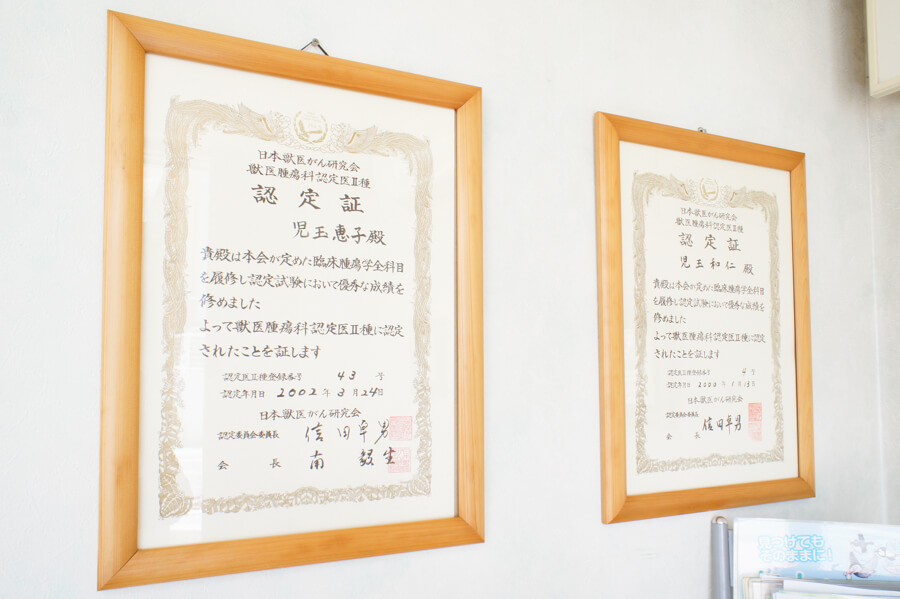 日本獣医がん研究会
獣医腫瘍科認定医Ⅱ種
認定証
児玉恵子殿
貴殿は本会が定めた臨床腫瘍学全科目
を履修し認定試験において優秀な成績を
修めました
よって獣医腫瘍科認定医Ⅱ種に認定
されたことを証します
認定医Ⅱ種登録番号 43 号
認定年月日 2002年3月24日
日本獣医がん研究会
認定委員会委員長 信田卓男
会長 南毅生
日本獣医がん研究会
獣医腫瘍科認定医Ⅱ種
認定証
児玉和仁殿
貴殿は本会が定めた臨床腫瘍学全科目
を履修し認定試験において優秀な成績を
修めました
よって獣医腫瘍科認定医Ⅱ種に認定
されたことを証します
認定医Ⅱ種登録番号 4 号
認定年月日 2000年1月15日
日本獣医がん研究会
認定委員会委員長
会長 信田卓男
見つけても
そのままに!